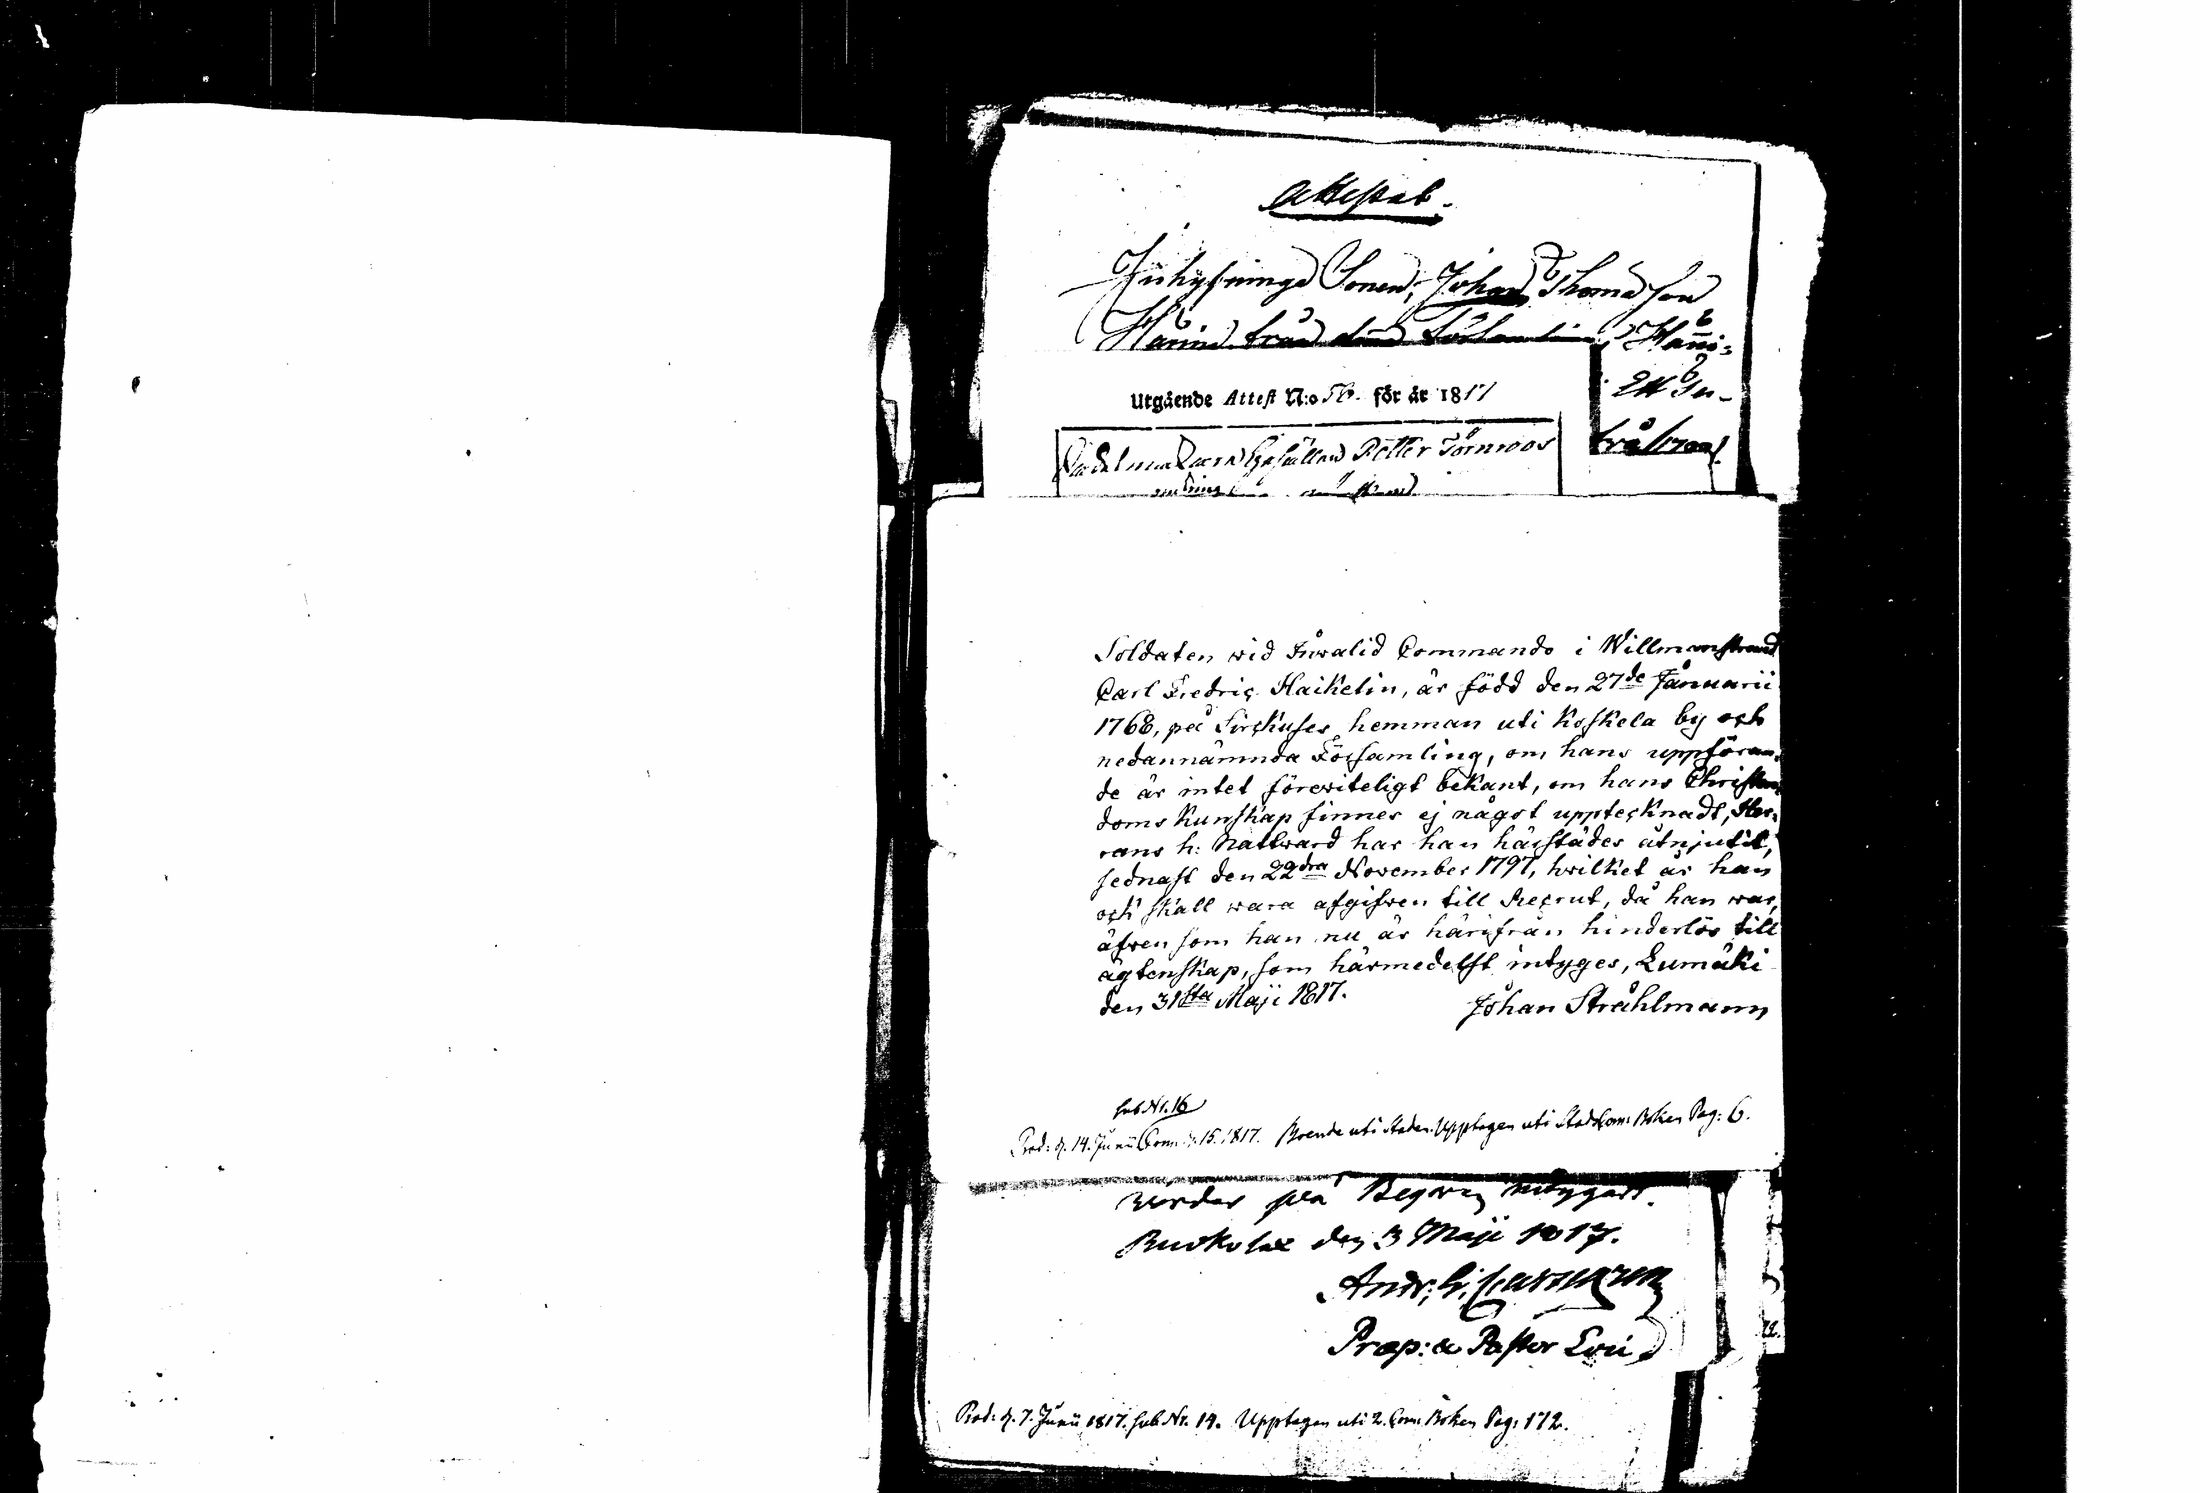 Attestat.
Inhysinge Sonen, Johan Thomasson
från
Utgående Attest N:o 56. för år 1817
Petter Törnroos
Soldaten wid Inwalid Commando i Willmanstrand
Carl Fredric Haikelin, är född den 27de Januarii
1768, på Sirckuses hemman uti Koskela by och
nedannämnda Församling, om hans uppföran-
de är intet förewiteligt bekant, om hans Christen-
doms kunskap finnes ej något upptecknadt, Her-
rans h: Nattward har han härstädes åtnjutit,
sednast den 22dra November 1797, hwilket år han
och skall wara afgifwen till Recrut, då han war,
äfwen som han nu är härifrån hinderlös till
ägtenskap, som härmedelst intyges, Lumäki
den 31sta Maji 1817.
Johan Stråhlmann
sub Nr. 16
Prod: d. 14. Junii Comm: d. 15. 1817. Boende uti Staden. Upptagen uti Stads Com: Boken Pag: 6.
warder på Begäran intygadt.
Ruokolax den 3 Maji 1817.
Præp: & Pastor Loci
Prod: d. 7. Junii 1817. sub Nr. 14. Upptagen uti 2. Com: Boken Pag: 172.